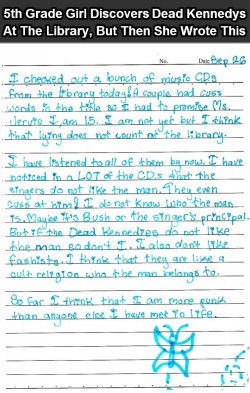 5th Grade Girl Discovers Dead Kennedys
At The Library, But Then She Wrote This
No. Date Sep 26
I checked out a bunch of music CDs
from the library today! A couple had cuss
words in the title so I had to promise Ms.
Jervis I am 15. I am not yet but I think
that lying does not count at the library.
I have listened to all of them by now. I have
noticed in a LOT of the CDs that the
singers do not like the man. They even
cuss at him! I do not know who the man
is. Maybe it's Bush or the singer's principal.
But if the Dead Kennedies do not like
the man so don't I. I also don't like
fashists. I think that they are like a
cult religion who the man belongs to.
So far I think that I am more punk
than anyone else I have met in life.